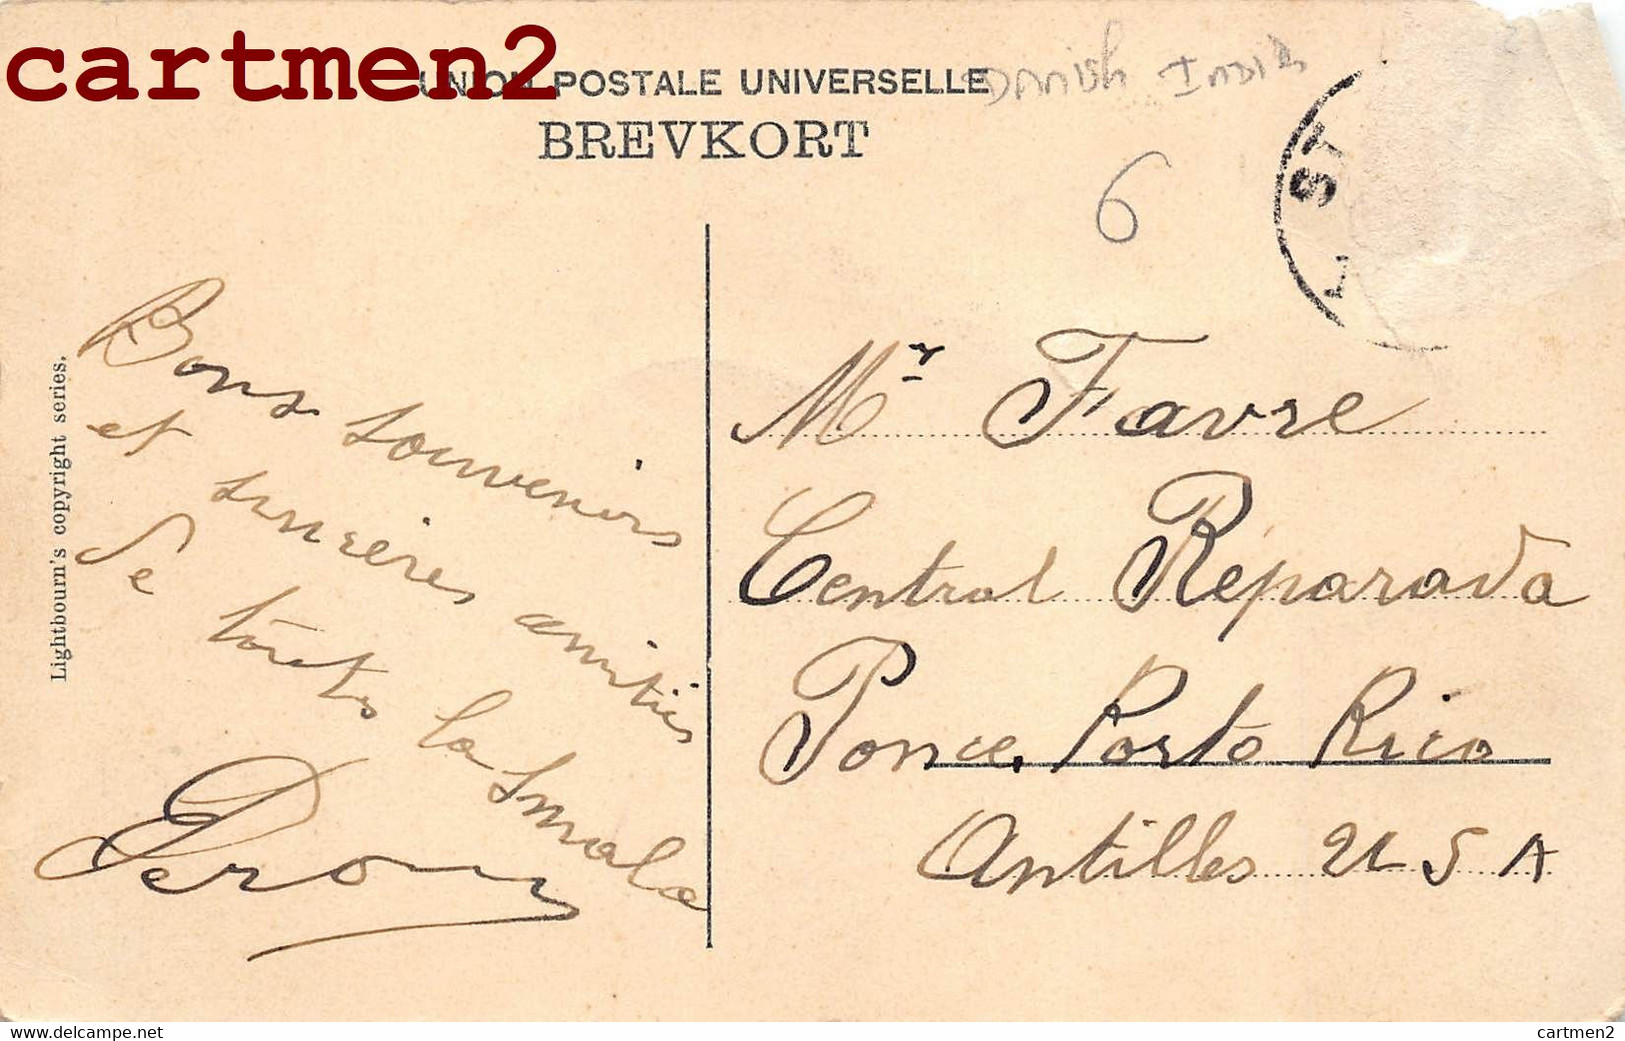 cartmen2
UNION POSTALE UNIVERSELLE
Danish India
BREVKORT
6
ST
Lightbourn's copyright series.
Bons souvenirs
et sincères amitiés
de toute la Smala
Mr Favre
Central Réparada
Ponce, Porto Rico
Antilles U S A
https://www.delcampe.net
cartmen2